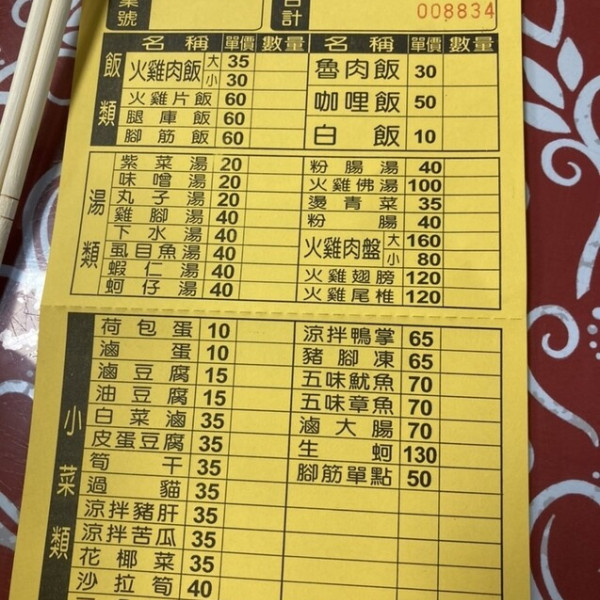 桌號 合計
008834
飯類
名稱 單價 數量 名稱 單價 數量
火雞肉飯 大 35
小 30
魯肉飯 30
火雞片飯 60
咖哩飯 50
腿庫飯 60
腳筋飯 60
白飯 10
湯類
紫菜湯 20 粉腸湯 40
味噌湯 20 火雞佛湯 100
丸子湯 20 燙青菜 35
雞腳湯 40 粉腸 40
下水湯 40 火雞肉盤 大 160
虱目魚湯 40 小 80
蝦仁湯 40 火雞翅膀 120
蚵仔湯 40 火雞尾椎 120
小菜類
荷包蛋 10 涼拌鴨掌 65
滷蛋 10 豬腳凍 65
滷豆腐 15 五味魷魚 70
油豆腐 15 五味章魚 70
白菜滷 35 滷大腸 70
皮蛋豆腐 35 生蚵 130
筍干 35 腳筋單點 50
過貓 35
涼拌豬肝 35
涼拌苦瓜 35
花椰菜 35
沙拉筍 40